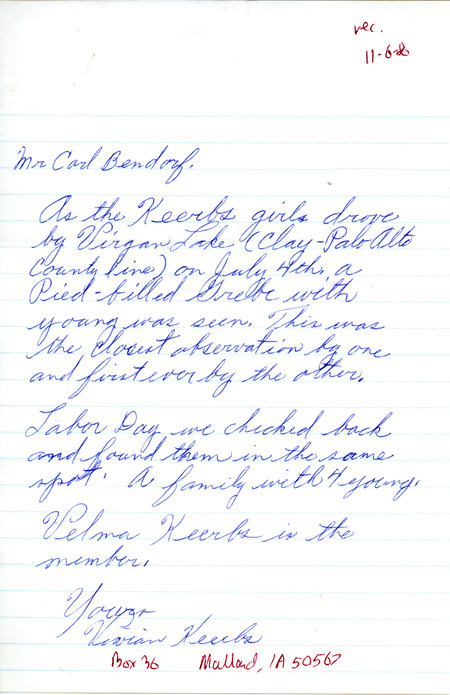 rec.
11-6-86
Mr Carl Bendorf.
As the Keerbs girls drove
by Virgan Lake (Clay-Palo Alto
County line) on July 4th, a
Pied-billed Grebe with
young was seen. This was
the closest observation by one
and first ever by the other.
Labor Day we checked back
and found them in the same
spot. A family with 4 young.
Velma Keerbs is the
member.
Yours
Vivian Keerbs
Box 36 Mallard, IA 50567